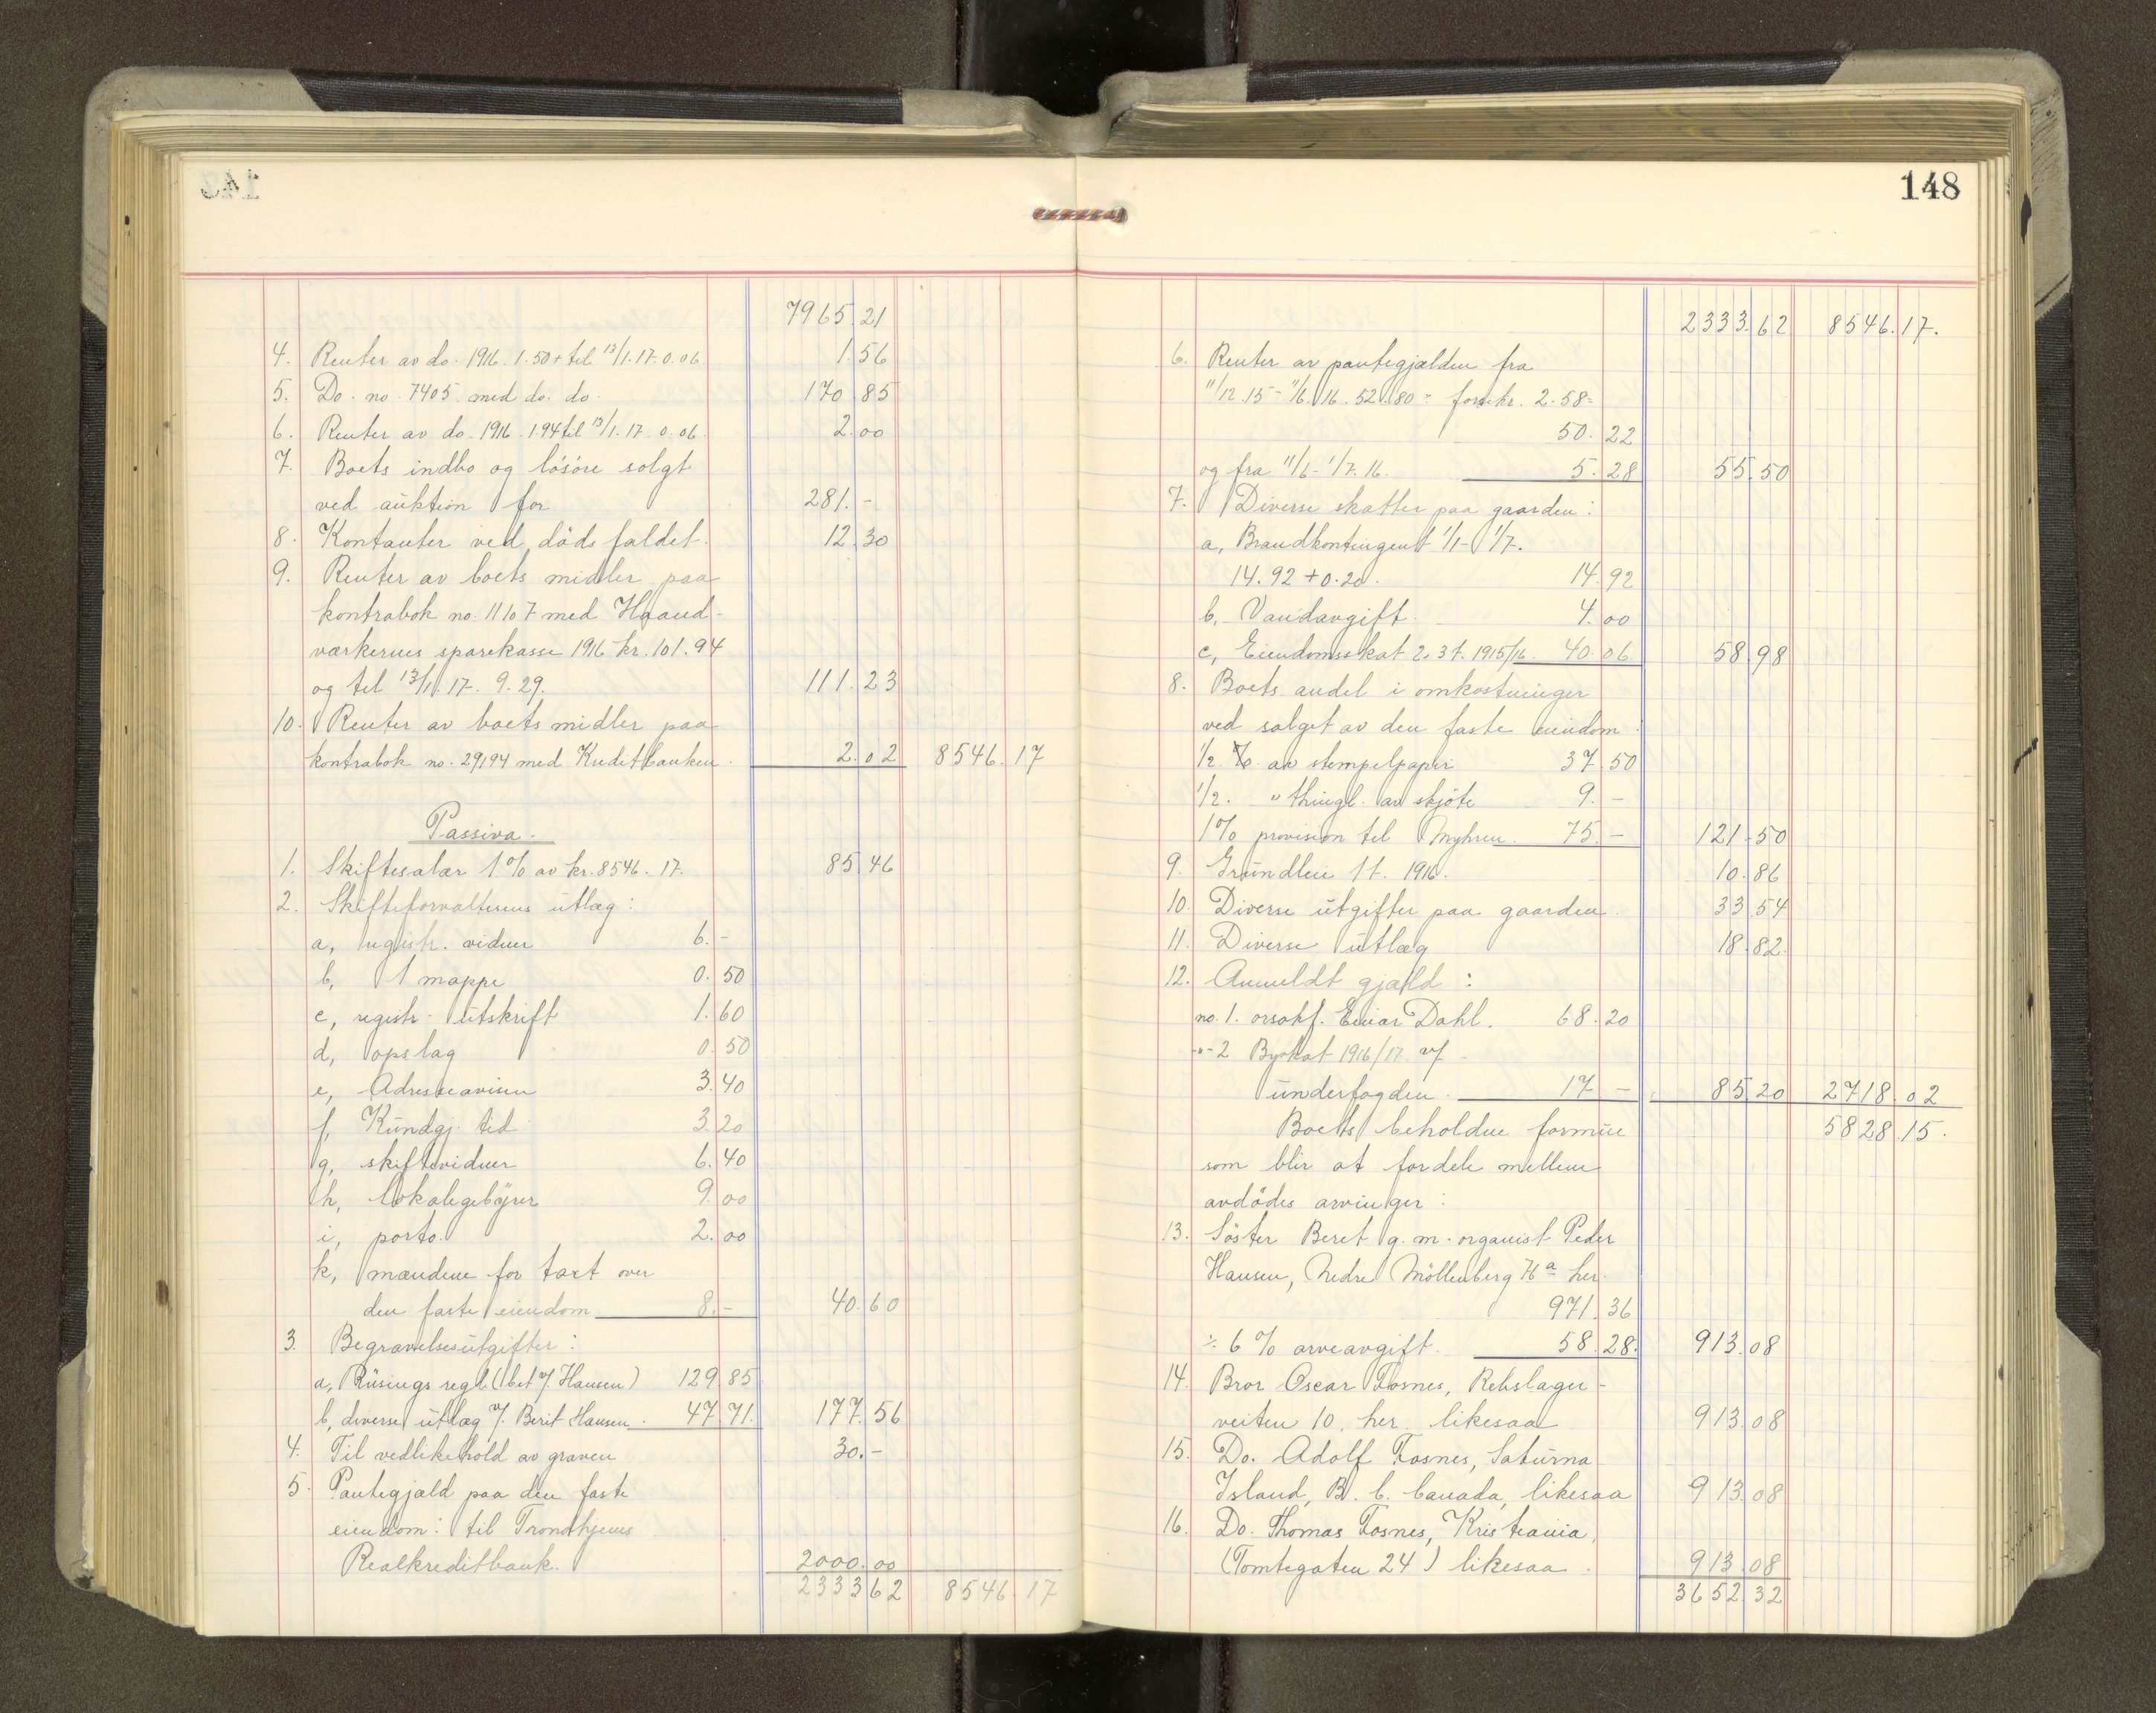 7965.21
4. Renter av do. 1916. 1.50 + til 13/1. 17. 0.06 1.56
5. Do. no. 7405 med do. do. 170.85
6. Renter av do. 1916. 1.94 til 13/1. 17. 0.06. 2.00
7. Boets indbo og lösöre solgt
ved auktion for 281.-
8. Kontanter ved dödsfaldet. 12.30
9. Renter av boets midler paa
kontrabok no. 11107 med Haand-
værkernes sparekasse 1916 kr. 101.94
og til 13/1. 17. 9.29. 111.23
10. Renter av boets midler paa
kontrabok no. 29194 med Kreditbanken. 2.02 8546.17
Passiva.
1. Skiftesalær 1% av kr. 8546.17. 85.46
2. Skifteforvalterens utlæg:
a, registr. vidner 6.-
b, 1 mappe 0.50
c, registr. utskrift 1.60
d, opslag 0.50
e, Adresseavisen 3.40
f, Kundgj. tid 3.20
g, skiftevidner 6.40
h, lokalegebyrer 9.00
i, porto. 2.00
k, mændene for taxt over
den faste eiendom 8.- 40.60
3. Begravelsesutgifter:
a, Rüsings regl. (bet v/. Hansen) 129.85
b, diverse utlæg v/. Berit Hansen. 47.71. 177.56
4. Til vedlikehold av graven 30.-
5. Pantegjæld paa den faste
eiendom: til Trondhjems
Realkreditbank. 2000.00
2333.62 8546.17
148
2333.62 8546.17.
6. Renter av pantegjælden fra
11/12.15 - 11/6. 16. 52.80 ÷ forsikr. 2.58 =
50.22
og fra 11/6 - 1/7. 16. 5.28 55.50
7. Diverse skatter paa gaarden:
a, Brandkontingent 1/1 - 1/7.
14.92 + 0.20. 14.92
b, Vandavgift. 4.00
c, Eiendomsskat 2. 3 t. 1915/16. 40.06 58.98
8. Boets andel i omkostninger
ved salget av den faste eiendom:
1/2. av stempelpapir 37.50
1/2. " thingl. av skjöte 9.-
1% provision til Myhren. 75.- 121.50
9. Grundleie 1 t. 1916. 10.86
10. Diverse utgifter paa gaarden. 33.54
11. Diverse utlæg 18.82.
12. Anmeldt gjæld:
no. 1. orsakf. Einar Dahl. 68.20
-"- 2 Byskat 1916/17 v/
underfogden. 17 - 85.20 2718.02
Boets beholdne formue 5828.15.
som blir at fordele mellem
avdödes arvinger:
13. Söster Beret g. m. organist Peder
Hansen, Nedre Möllenberg 76a her.
971.36
÷ 6% arveavgift. 58.28. 913.08
14. Bror Oscar Fosnes, Rebslager-
veiten 10, her likesaa 913.08
15. Do. Adolf Fosnes, Saturna
Island, B. C. Canada, likesaa 913.08
16. Do. Thomas Fosnes, Kristiania,
(Tomtegaten 24) likesaa. 913.08
3652.32